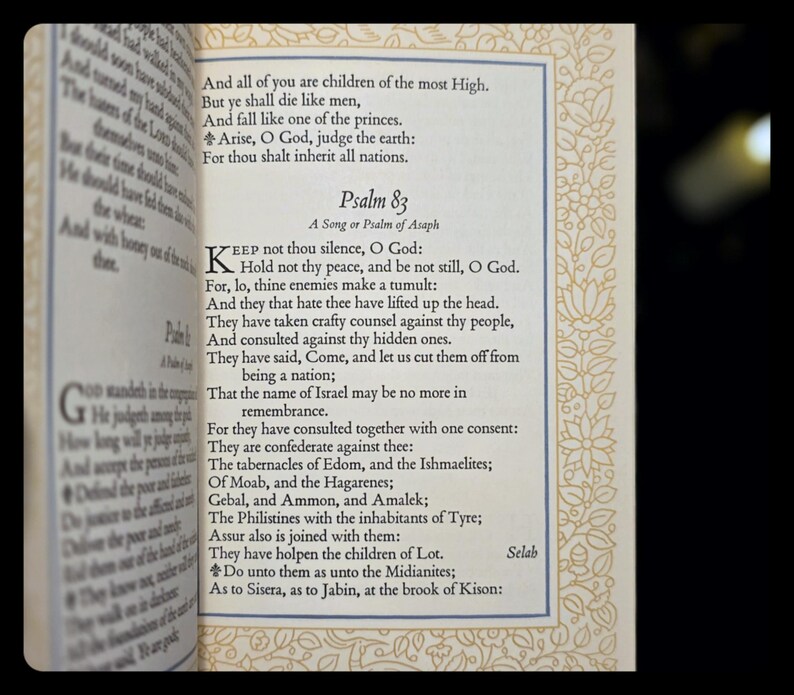 people had
Israel had walked in my
I should soon have subdued
And turned my hand against
The haters of the LORD should
themselves unto him:
But their time should have
He should have fed them also with
the wheat:
And with honey out of the rock
thee.
Psalm 82
A Psalm of Asaph
GOD standeth in the congregation
He judgeth among the gods.
How long will ye judge unjustly,
And accept the persons of the
Defend the poor and fatherless:
Do justice to the afflicted and needy.
Deliver the poor and needy:
Rid them out of the hand of the
They know not, neither will
They walk on in darkness:
All the foundations of the earth
have said, Ye are gods;
And all of you are children of the most High.
But ye shall die like men,
And fall like one of the princes.
Arise, O God, judge the earth:
For thou shalt inherit all nations.
Psalm 83
A Song or Psalm of Asaph
KEEP not thou silence, O God:
Hold not thy peace, and be not still, O God.
For, lo, thine enemies make a tumult:
And they that hate thee have lifted up the head.
They have taken crafty counsel against thy people,
And consulted against thy hidden ones.
They have said, Come, and let us cut them off from
being a nation;
That the name of Israel may be no more in
remembrance.
For they have consulted together with one consent:
They are confederate against thee:
The tabernacles of Edom, and the Ishmaelites;
Of Moab, and the Hagarenes;
Gebal, and Ammon, and Amalek;
The Philistines with the inhabitants of Tyre;
Assur also is joined with them:
They have holpen the children of Lot. Selah
Do unto them as unto the Midianites;
As to Sisera, as to Jabin, at the brook of Kison: